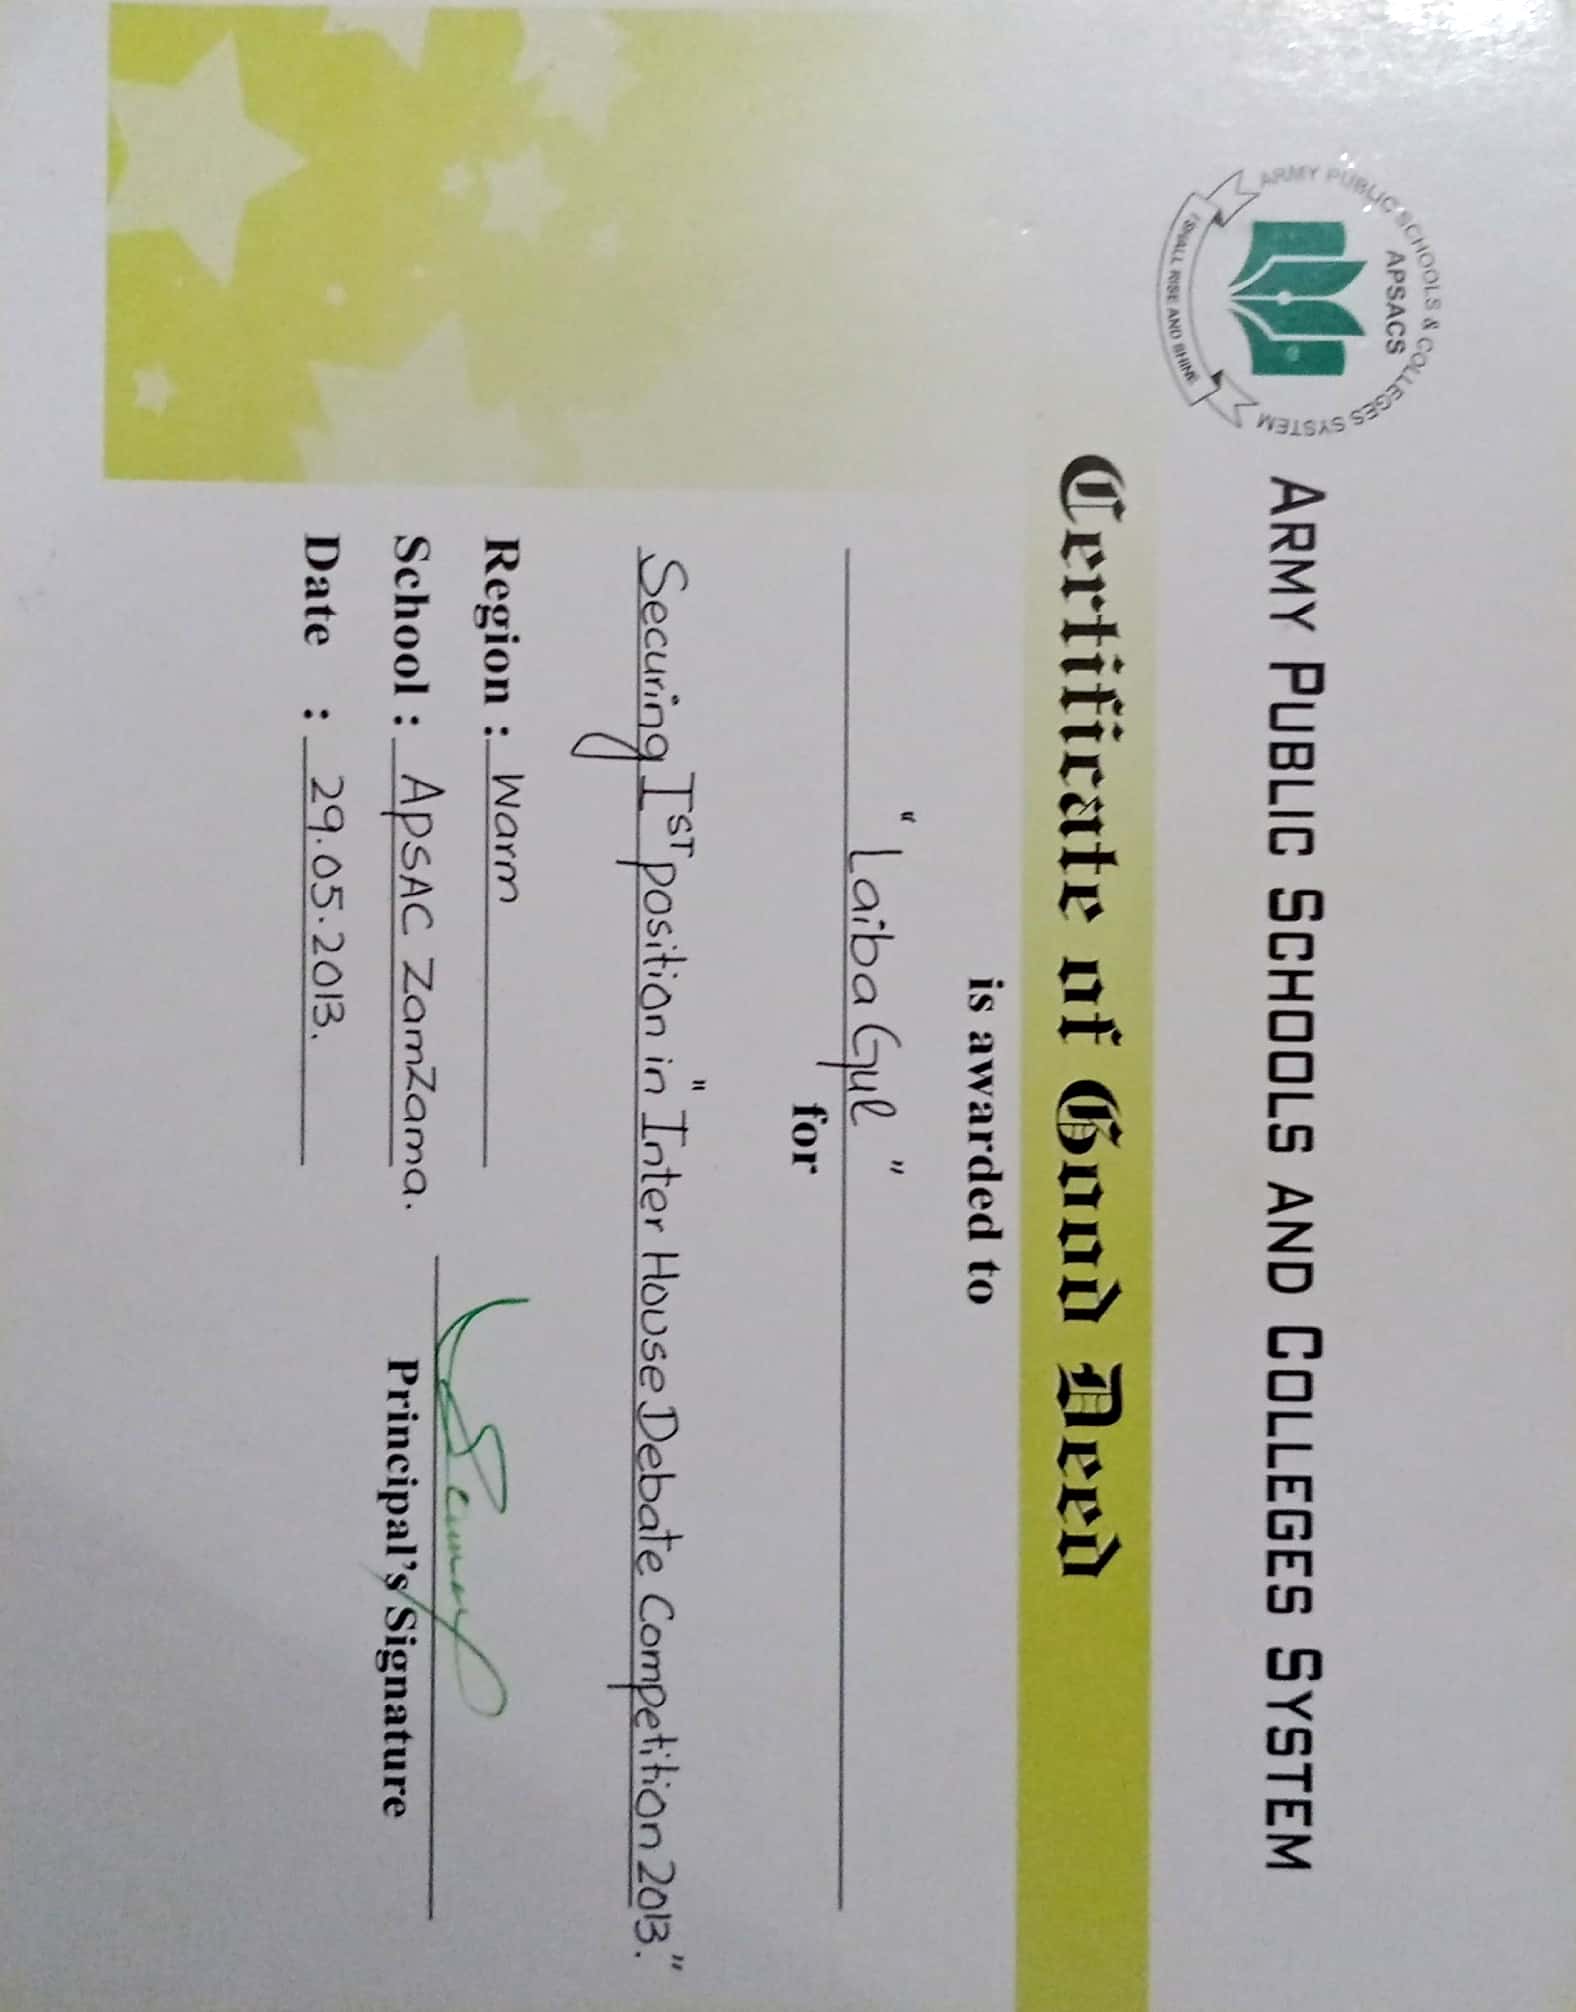 ARMY PUBLIC SCHOOLS & COLLEGES SYSTEM
APSACS
I SHALL RISE AND SHINE
ARMY PUBLIC SCHOOLS AND COLLEGES SYSTEM
Certificate of Good Deed
is awarded to
"Laiba Gul"
for
Securing Iˢᵀ position in "Inter House Debate Competition 2013."
Region : Warm
School : APSAC ZamZama.
Principal's Signature
Date : 29.05.2013.